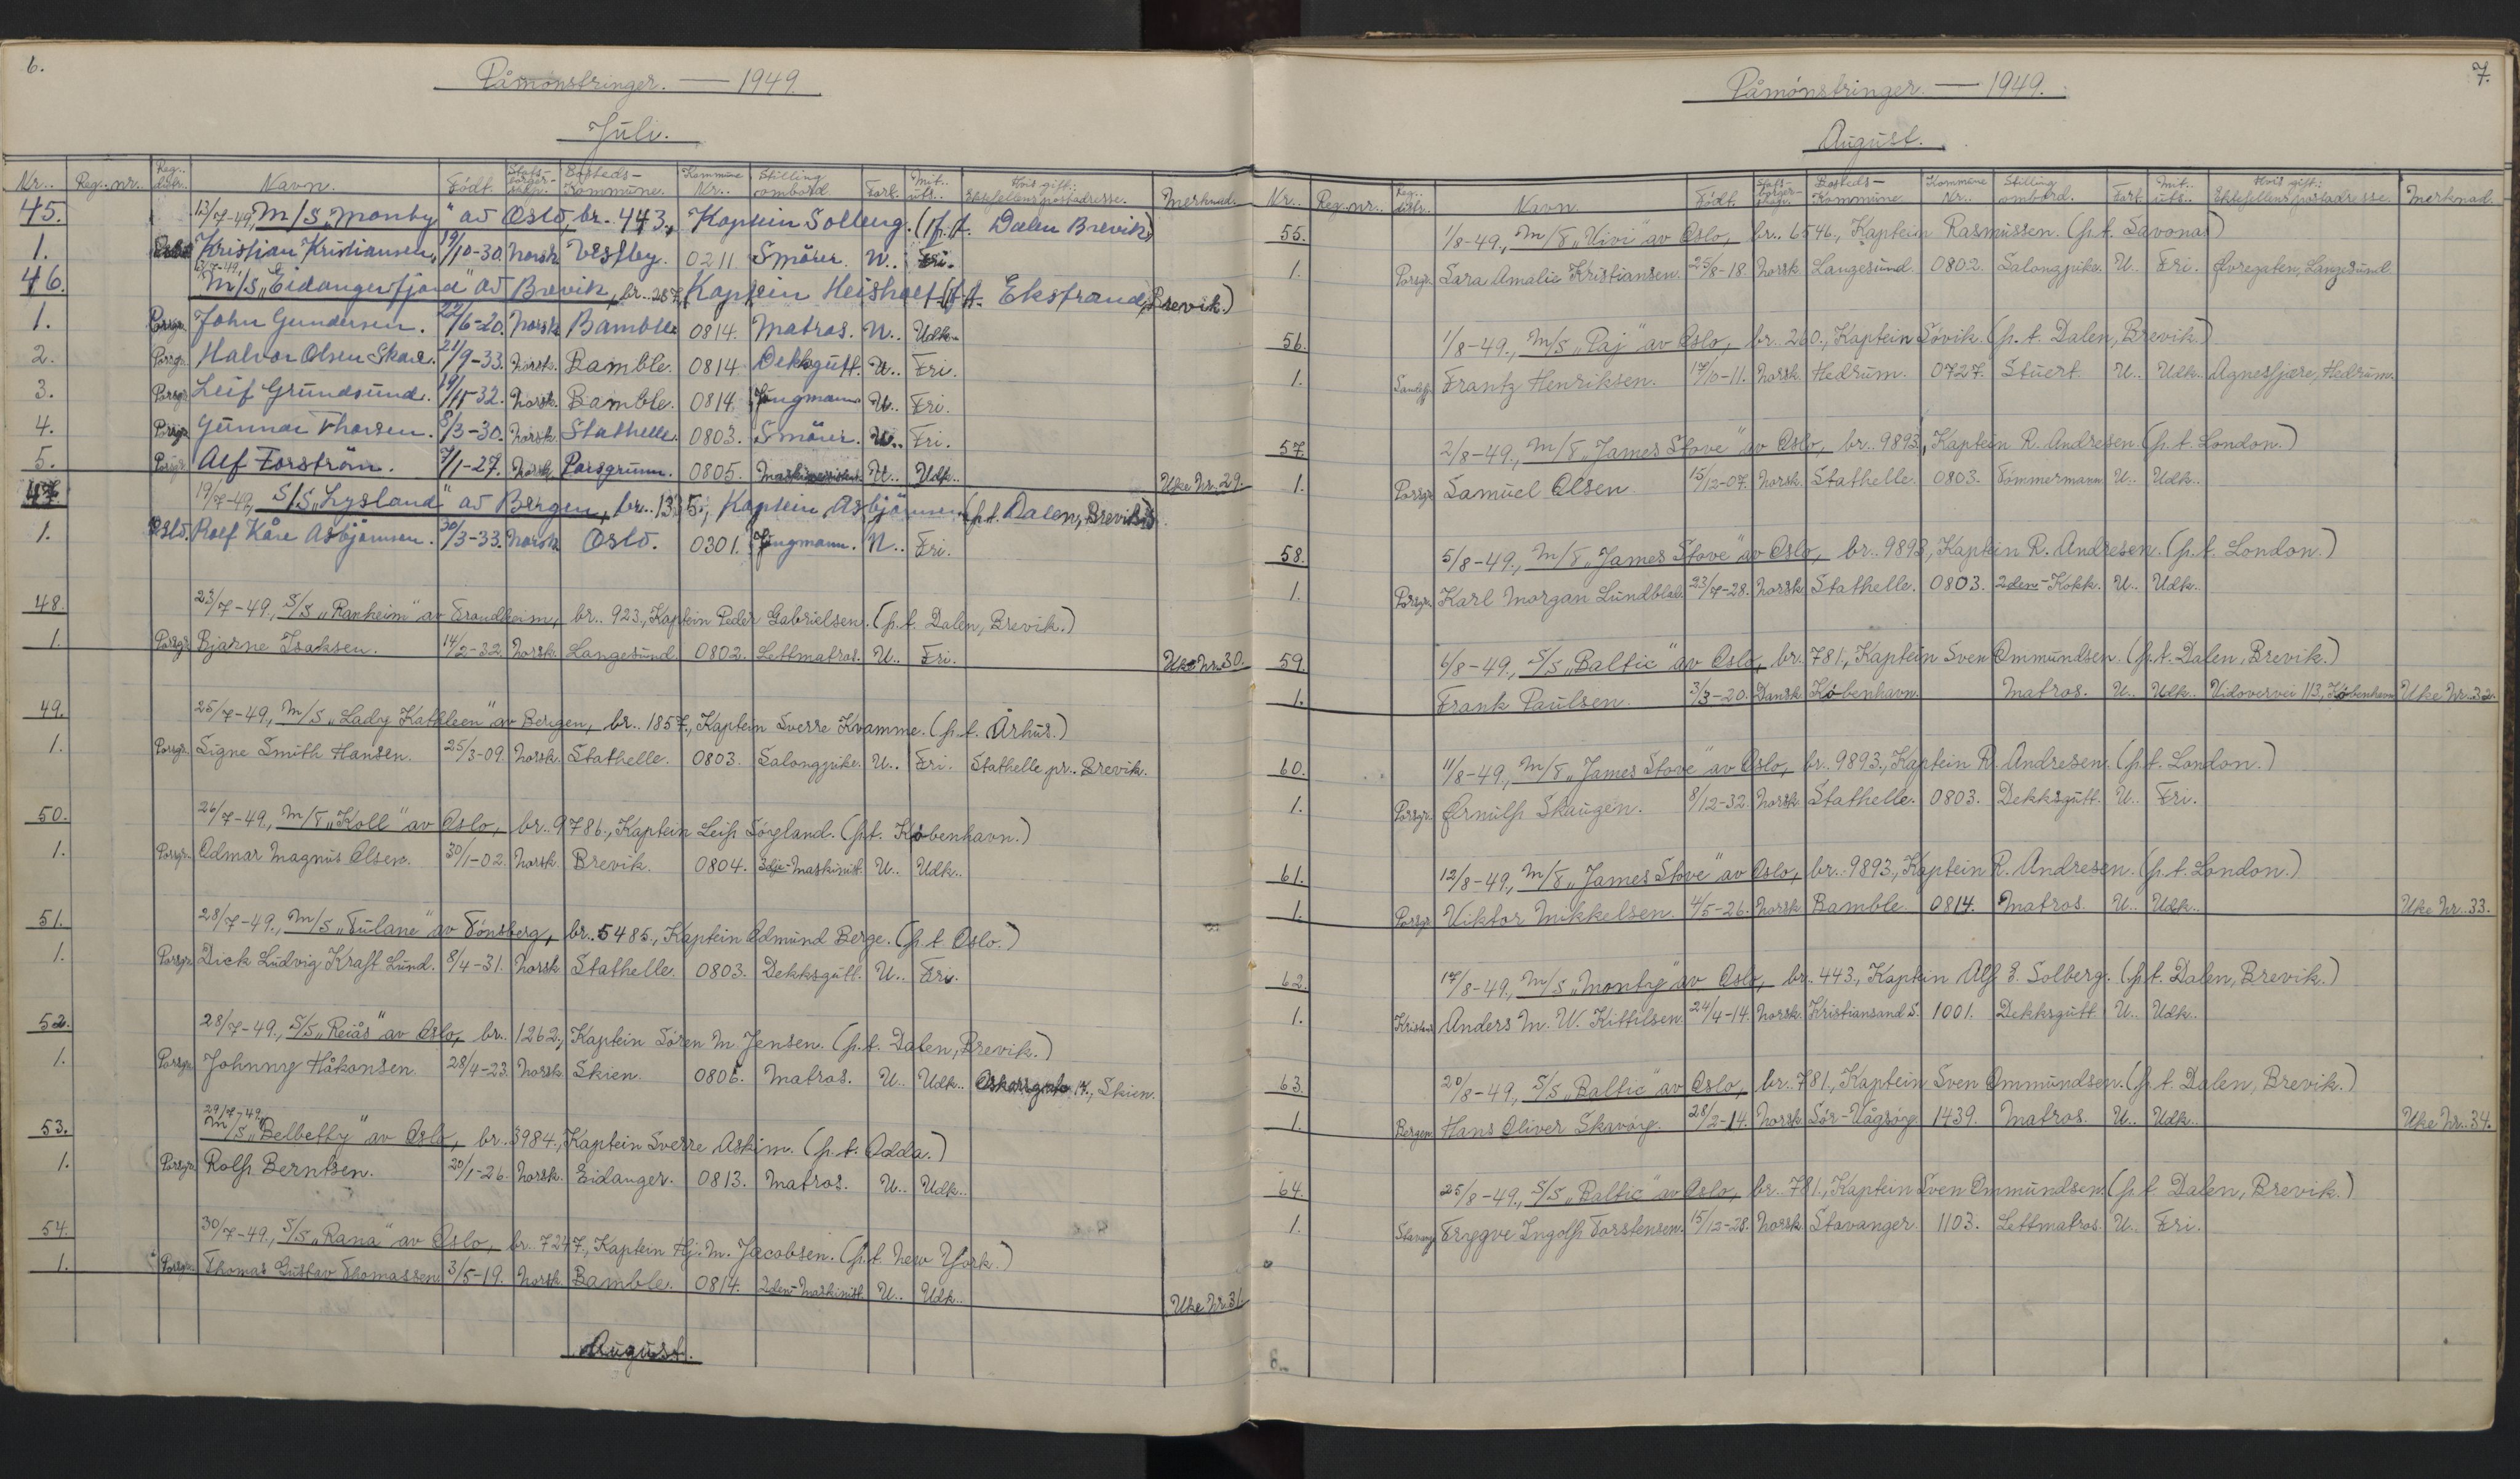 6.
Påmønstringer. — 1949.
Juli.
Nr.. Reg. nr.. Reg.. distr.. Navn. Født. Stats- borger- skap. Bosteds- Kommune. Kommune Nr.. Stilling ombord. Fart. Mil.. uts.. Hvis gift.: Ektefellens postadresse. Merknad.
45. 13/7-49, M/S „Monty" av Oslo, br. 443., Kaptein Solberg. (p.t. Dalen Brevik)
1. Oslo Kristian Kristiansen. 19/10-30. Norsk Vestby. 0211 Smører. N.. Fri.
46. M/S „Eidangerfjord" av Brevik, br.. 287, Kaptein (p.t. Ekstrand, Brevik.)
1. Porsgr. John Gundersen. 22/6-20. Norsk Bamble 0814. Matros. N.. Udk..
2. Porsgr. Halvor Olsen Skare. 21/9-33. Norsk. Bamble. 0814 Dekksgutt. U.. Fri.
3. Porsgr. Leif Grundsund. 19/11-32. Norsk. Bamble. 0814. Jungmann U.. Fri.
4. Porsgr. Gunnar Thorsen. 8/3-30. Norsk. Stathelle. 0803. Smører. U.. Fri.
5. Porsgr. Alf Forström. 7/1-27. Norsk. Porsgrunn. 0805. Maskinassistent U.. Udk.. Uke Nr. 29.
47. 19/7-49, S/S „Lysland" av Bergen, br.. 1335., Kaptein Asbjörnsen (p.t. Dalen, Brevik)
1. Oslo. Rolf Kåre Asbjörnsen. 30/3-33. Norsk Oslo. 0301. Jungmann. N.. Fri.
48. 23/7-49., S/S „Ranheim" av Trondheim, br.. 923., Kaptein Peder Gabrielsen. (p.t. Dalen, Brevik.)
1. Porsgr. Bjarne Isaksen. 14/2-32. Norsk. Langesund. 0802. Lettmatros. U.. Fri. Uke Nr. 30.
49. 25/7-49, M/S „Lady Kathleen" av Bergen, br.. 1857., Kaptein Sverre Kvamme. (p.t. Århus.)
1. Porsgr. Signe Smith Hansen. 25/3-09. Norsk. Stathelle. 0803. Salongpike. U.. Fri. Stathelle pr.. Brevik.
50. 26/7-49., M/T „Koll" av Oslo, br.. 9786., Kaptein Leif Sørgland. (p.t. København.)
1. Porsgr. Odmar Magnus Olsen. 30/1-02. Norsk. Brevik. 0804. 3dje- Maskinist. U.. Udk..
51. 28/7-49., M/S „Tulane" av Tønsberg, br.. 5485., Kaptein Edmund Berge. (p.t Oslo.)
1. Porsgr. Dick Ludvig Kraft Lund. 8/4-31. Norsk. Stathelle. 0803. Dekksgutt. U.. Fri.
52. 28/7-49., S/S „Reiås" av Oslo, br.. 1262., Kaptein Søren M. Jensen. (p.t. Dalen, Brevik.)
1. Porsgr. Johnny Håkonsen. 28/4-23. Norsk. Skien. 0806. Matros. U.. Udk.. Oskarsgate 17., Skien.
53. 29/7-49., M/S „Belbetty" av Oslo, br.. 3984., Kaptein Sverre Askim. (p.t. Odda.)
1. Porsgr. Rolf Berntsen. 20/1-26. Norsk. Eidanger. 0813. Matros. U.. Udk..
54. 30/7-49., S/S „Rana" av Oslo, br. 7247., Kaptein Hj. M. Jacobsen. (p.t. New York.)
1. Porsgr. Thomas Gustav Thomassen. 3/5-19. Norsk. Bamble. 0814. 2den- Maskinist. U.. Udk.. Uke Nr. 31.
August.
7.
Påmønstringer. — 1949.
August.
Nr.. Reg. nr.. Reg.. distr.. Navn. Født. Stats- borger- skap. Bosteds- Kommune. Kommune Nr.. Stilling ombord. Fart. Mil.. uts.. Hvis gift.: Ektefellens postadresse. Merknad.
55. 1/8-49., M/T „Vivi" av Oslo, br.. 6546., Kaptein Rasmussen. (p.t. Savona)
1. Porsgr. Sara Amalie Kristiansen. 25/8-18. Norsk. Langesund. 0802. Salongpike. U.. Fri. Øvregaten, Langesund.
56. 1/8-49., M/S „Paj" av Oslo, br.. 260., Kaptein Søvik. (p.t. Dalen, Brevik.)
1. Sandefj. Frantz Henriksen. 17/10-11. Norsk. Hedrum. 0727. Stuert. U.. Udk.. Agnesfjære, Hedrum.
57. 2/8-49., M/T „James Stove" av Oslo, br.. 9893, Kaptein R. Andresen. (p.t. London.)
1. Porsgr. Samuel Olsen. 15/12-07. Norsk. Stathelle. 0803. Tømmermann U.. Udk..
58. 5/8-49., M/T „James Stove" av Oslo, br.. 9893, Kaptein R. Andresen. (p.t. London.)
1. Porsgr. Karl Morgan Lundblad. 23/7-28. Norsk Stathelle. 0803. 2den- Kokk. U.. Udk..
59. 6/8-49., S/S „Baltic" av Oslo, br. 781., Kaptein Sven Ommundsen. (p.t. Dalen, Brevik.)
1. Frank Paulsen. 3/3-20. Dansk. København. Matros. U.. Udk.. Vidovervei 113, København Uke Nr. 32.
60. 11/8-49., M/T „James Stove" av Oslo, br. 9893., Kaptein R. Andresen. (p.t. London.)
1. Porsgr. Ørnulf Skaugen. 8/12-32. Norsk. Stathelle. 0803. Dekksgutt. U.. Fri.
61. 12/8-49., M/T „James Stove" av Oslo, br.. 9893., Kaptein R. Andresen. (p.t. London.)
1. Porsgr. Viktor Mikkelsen. 4/5-26. Norsk Bamble. 0814. Matros. U.. Udk.. Uke Nr. 33.
62. 17/8-49., M/S „Monty" av Oslo, br.. 443., Kaptein Alf E. Solberg. (p.t. Dalen, Brevik.)
1. Kristians Anders M. W. Kittilsen. 24/4-14. Norsk. Kristiansand S. 1001. Dekksgutt. U.. Udk..
63. 20/8-49., S/S „Baltic" av Oslo, br.. 781., Kaptein Sven Ommundsen. (p.t. Dalen, Brevik.)
1. Bergen Hans Oliver Skavøy. 28/2-14. Norsk. Sør-Vågsøy. 1439. Matros. U.. Udk.. Uke Nr. 34.
64. 25/8-49., S/S „Baltic" av Oslo, br. 781., Kaptein Sven Ommundsen. (p.t. Dalen, Brevik.)
1. Stavang. Tryggve Ingolf Torstensen. 15/12-28. Norsk. Stavanger. 1103. Lettmatros. U.. Fri.